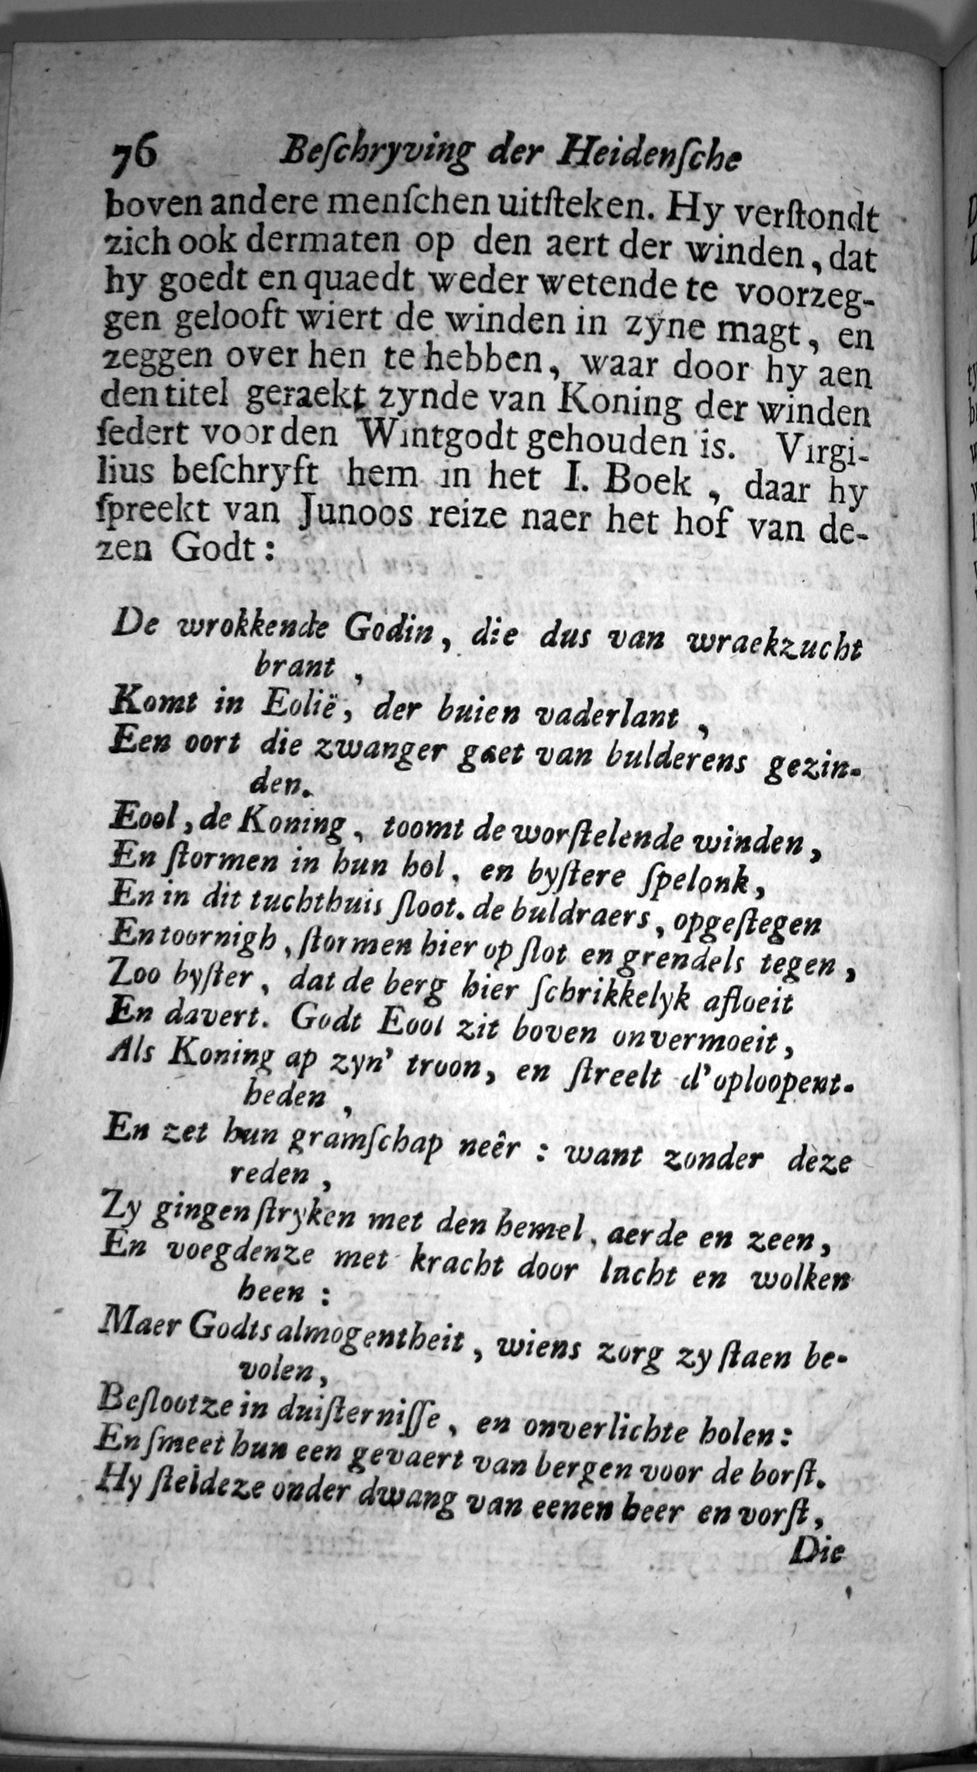 76 Beſchryving der Heidenſche
boven andere menſchen uitſteken. Hy verſtondt
zich ook dermaten op den aert der winden, dat
hy goedt en quaedt weder wetende te voorzeg-
gen gelooft wiert de winden in zyne magt, en
zeggen over hen te hebben, waar door hy aen
den titel geraekt zynde van Koning der winden
ſedert voor den Wintgodt gehouden is. Virgi-
lius beſchryft hem in het I. Boek, daar hy
ſpreekt van Junoos reize naer het hof van de-
zen Godt:
De wrokkende Godin, die dus van wraekzucht
brant,
Komt in Eolië, der buien vaderlant,
Een oort die zwanger gaet van bulderens gezin-
den.
Eool, de Koning, toomt de worſtelende winden,
En ſtormen in hun hol, en byſtere ſpelonk,
En in dit tuchthuis ſloot. de buldraers, opgeſtegen
En toornigh, ſtormen hier op ſlot en grendels tegen,
Zoo byſter, dat de berg hier ſchrikkelyk afloeit
En davert. Godt Eool zit boven onvermoeit,
Als Koning ap zyn' troon, en ſtreelt d'oploopent-
heden,
En zet hun gramſchap neêr: want zonder deze
reden,
Zy gingen ſtryken met den hemel, aerde en zeen,
En voegdenze met kracht door lucht en wolken
heen:
Maer Godts almogentheit, wiens zorg zy ſtaen be-
volen,
Beſlootze in duiſterniſſe, en onverlichte holen:
En ſmeet hun een gevaert van bergen voor de borſt.
Hy ſteldeze onder dwang van eenen heer en vorſt,
Die